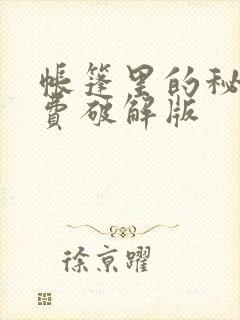 帐篷里的秘
费破解版
徐京躍